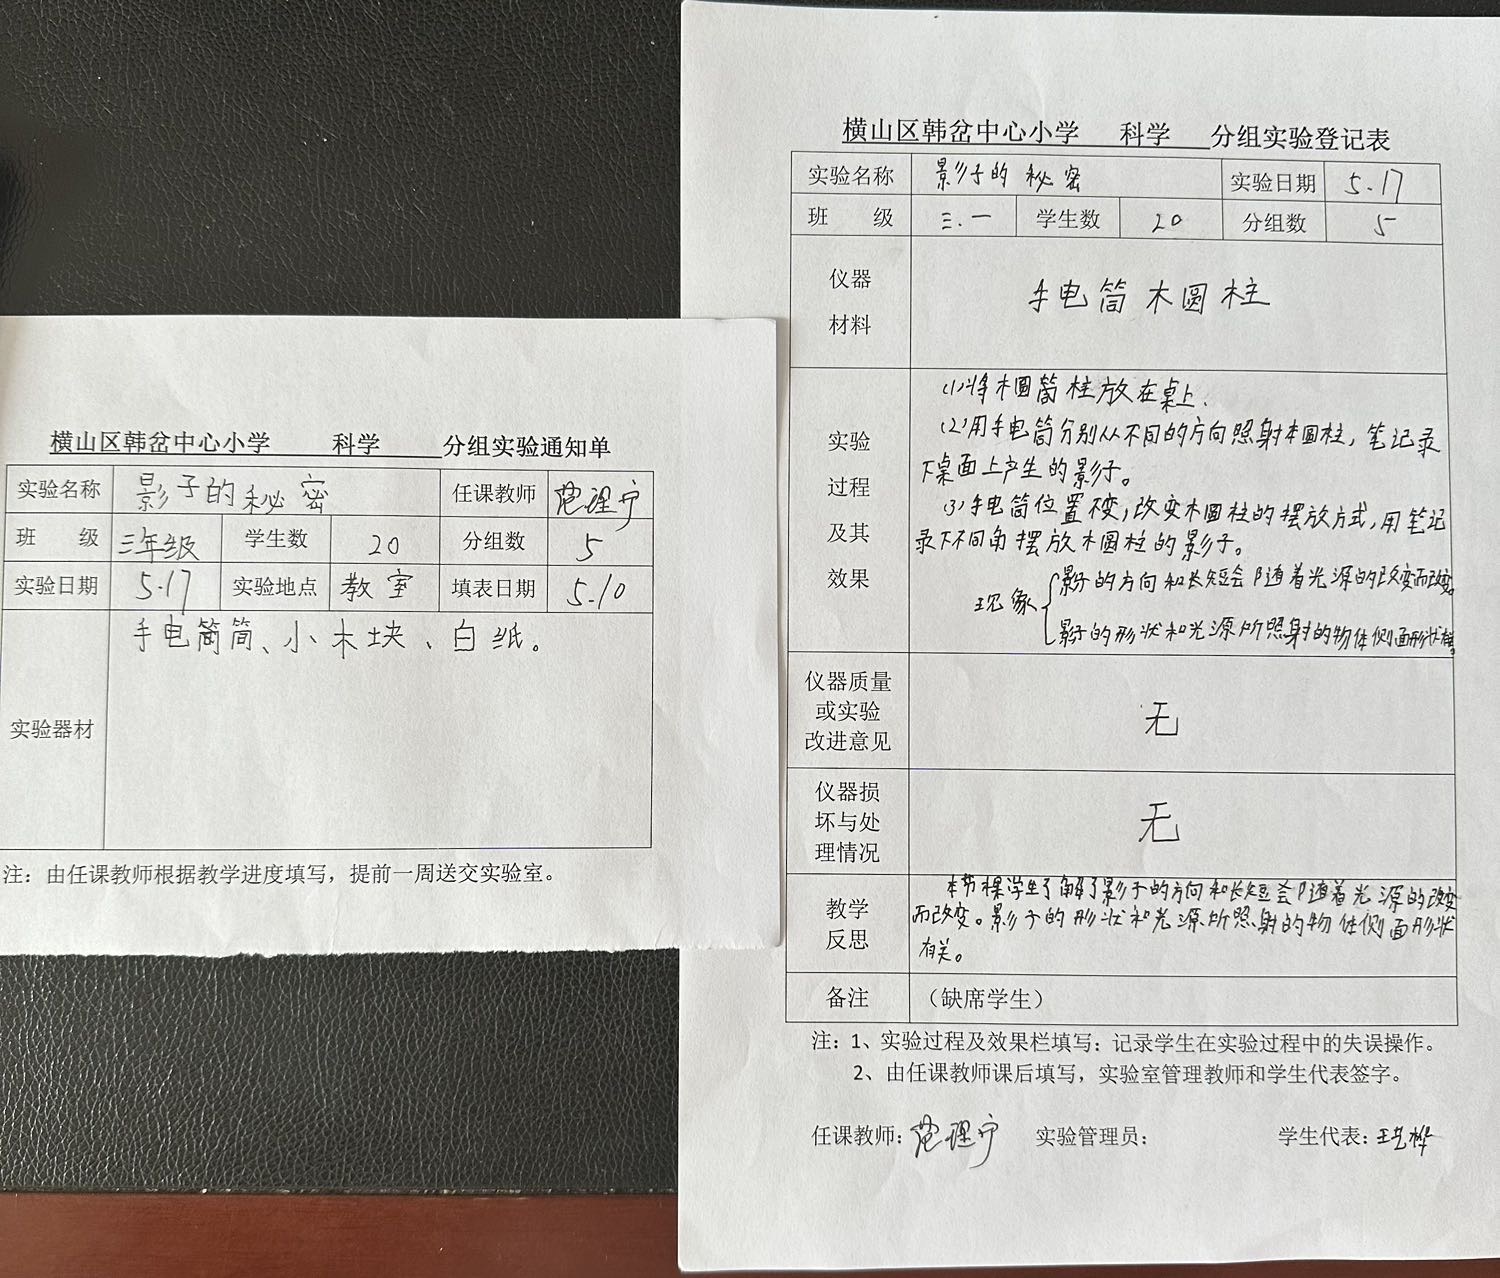 横山区韩岔中心小学 科学 分组实验通知单
实验名称 影子的秘密 任课教师 范理宁
班 级 三年级 学生数 20 分组数 5
实验日期 5.17 实验地点 教室 填表日期 5.10
实验器材 手电筒筒、小木块、白纸。
注：由任课教师根据教学进度填写，提前一周送交实验室。
横山区韩岔中心小学 科学 分组实验登记表
实验名称 影子的秘密 实验日期 5.17
班 级 三.一 学生数 20 分组数 5
仪器
材料
手电筒 木圆柱
实验
过程
及其
效果
(1)将木圆筒柱放在桌上.
(2)用手电筒分别从不同的方向照射本圆柱，笔记录
下桌面上产生的影子。
(3)手电筒位置不变，改变木圆柱的摆放方式，用笔记
录下不同角摆放木圆柱的影子。
现象
影子的方向和长短会随着光源的改变而改变。
影子的形状和光源所照射的物体侧面形状
仪器质量
或实验
改进意见
无
仪器损
坏与处
理情况
无
教学
反思
本节课学生了解了影子的方向和长短会随着光源的改变
而改变。影子的形状和光源所照射的物体侧面形状
有关。
备注 （缺席学生）
注：1、实验过程及效果栏填写：记录学生在实验过程中的失误操作。
2、由任课教师课后填写，实验室管理教师和学生代表签字。
任课教师：范理宁 实验管理员： 学生代表：王艺桦